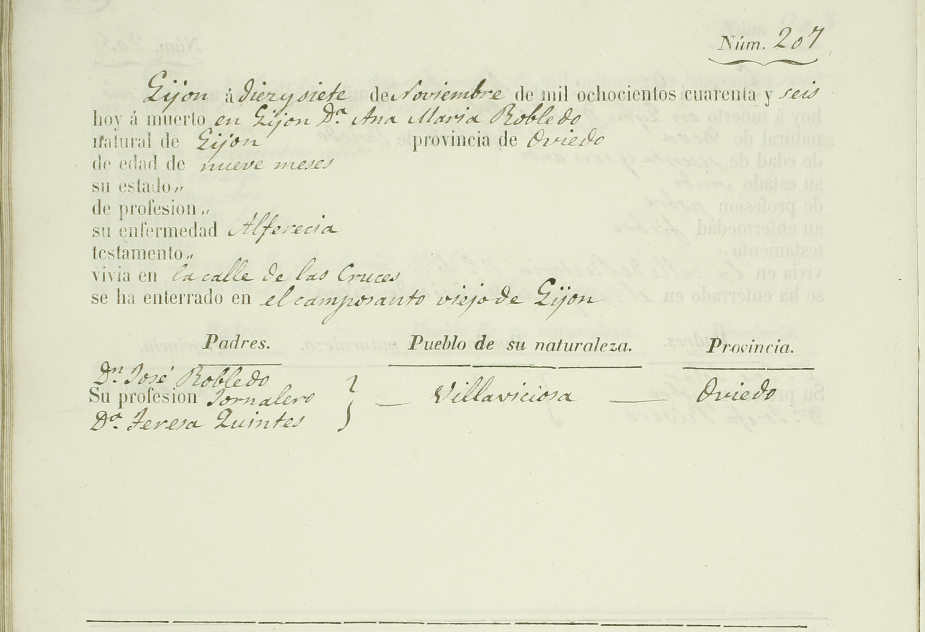 Núm. 207
Gijon á diez y siete de Noviembre de mil ochocientos cuarenta y seis
hoy á muerto en Gijon Dª. Ana Maria Robledo
natural de Gijon provincia de Oviedo
de edad de nueve meses
su estado „
de profesion „
su enfermedad Alferecia
testamento „
vivia en la calle de las Cruces
se ha enterrado en el camposanto viejo de Gijon
Padres. Pueblo de su naturaleza. Provincia.
Dn. José Robledo
Su profesion Jornalero } — Villaviciosa — Oviedo
Dª. Teresa Quintes